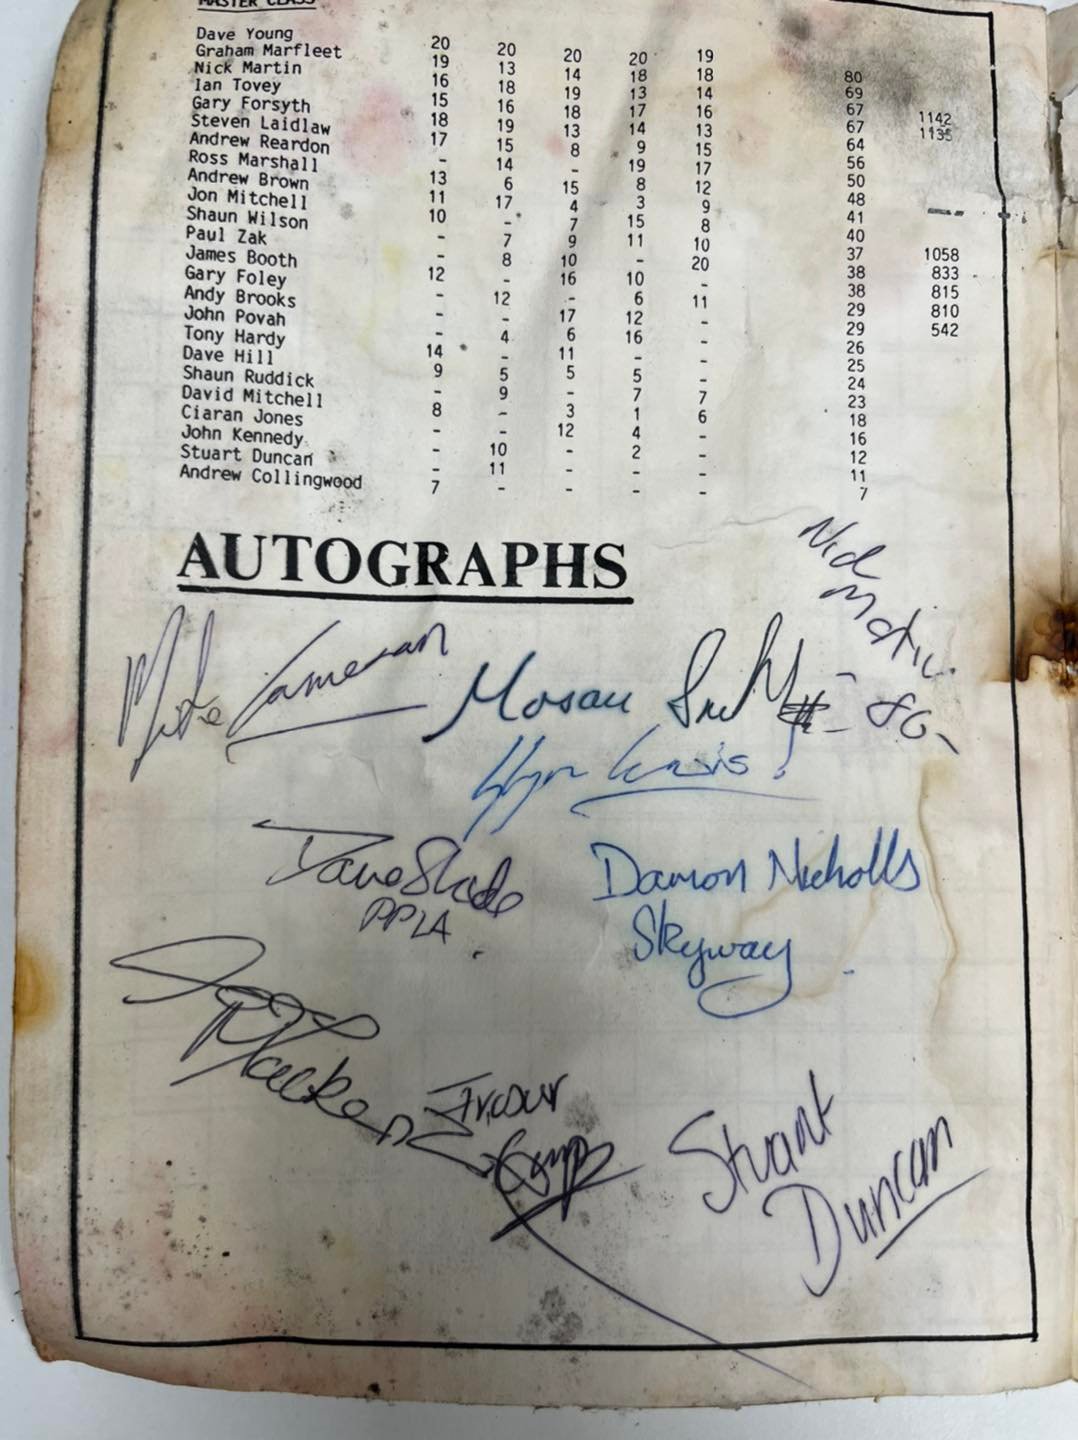 MASTER CLASS
Dave Young 20 20 20 20 19 80
Graham Marfleet 19 13 14 18 18 69
Nick Martin 16 18 19 13 14 67 1142
Ian Tovey 15 16 18 17 16 67 1135
Gary Forsyth 18 19 13 14 13 64
Steven Laidlaw 17 15 8 9 15 56
Andrew Reardon - 14 - 19 17 50
Ross Marshall 13 6 15 8 12 48
Andrew Brown 11 17 4 3 9 41
Jon Mitchell 10 - 7 15 8 40
Shaun Wilson - 7 9 11 10 37 1058
Paul Zak - 8 10 - 20 38 833
James Booth 12 - 16 10 - 38 815
Gary Foley - 12 - 6 11 29 810
Andy Brooks - - 17 12 - 29 542
John Povah - 4 6 16 - 26
Tony Hardy 14 - 11 - - 25
Dave Hill 9 5 5 5 - 24
Shaun Ruddick - 9 - 7 7 23
David Mitchell 8 - 3 1 6 18
Ciaran Jones - - 12 4 - 16
John Kennedy - 10 - 2 - 12
Stuart Duncan - 11 - - - 11
Andrew Collingwood 7 - - - - 7
AUTOGRAPHS
Nick
Martin
-86-
Mike Cameron
Dave Slade
PPLA
Damon Nicholls
Skyway
Stuart
Duncan